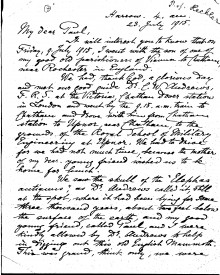 Harrow, 4 Aug
23 July 1915.
My dear Paul,
It will interest you to know that on
Friday, 9 July 1915, I went with the son of one of
my good old parishioners of
near Rochester in England.
We had, thank God, a glorious day
and met our good guide Dr. C. W. Andrews,
F.R.S. at the Victoria, Chatham & Dover station
in London and went by the 9.15 a.m. train to
Chatham and drove with him from Chatham
station to Upnor near Chatham to the
grounds of the Royal School of Military
Engineering at Upnor. We had to drive
for we had not much time, because the mother
of my young friend wished us to be
home for lunch.
We saw the skull of the Elephas
antiquus; as Dr. Andrews called it, still
at the spot, where it had been lying for some
three thousand years, about two feet below
the surface of the earth, and my good
young friend, called Paul, and I were
kindly allowed by Dr. Andrews to help
in digging out this old English Mammoth.
This was grand, think only, we were